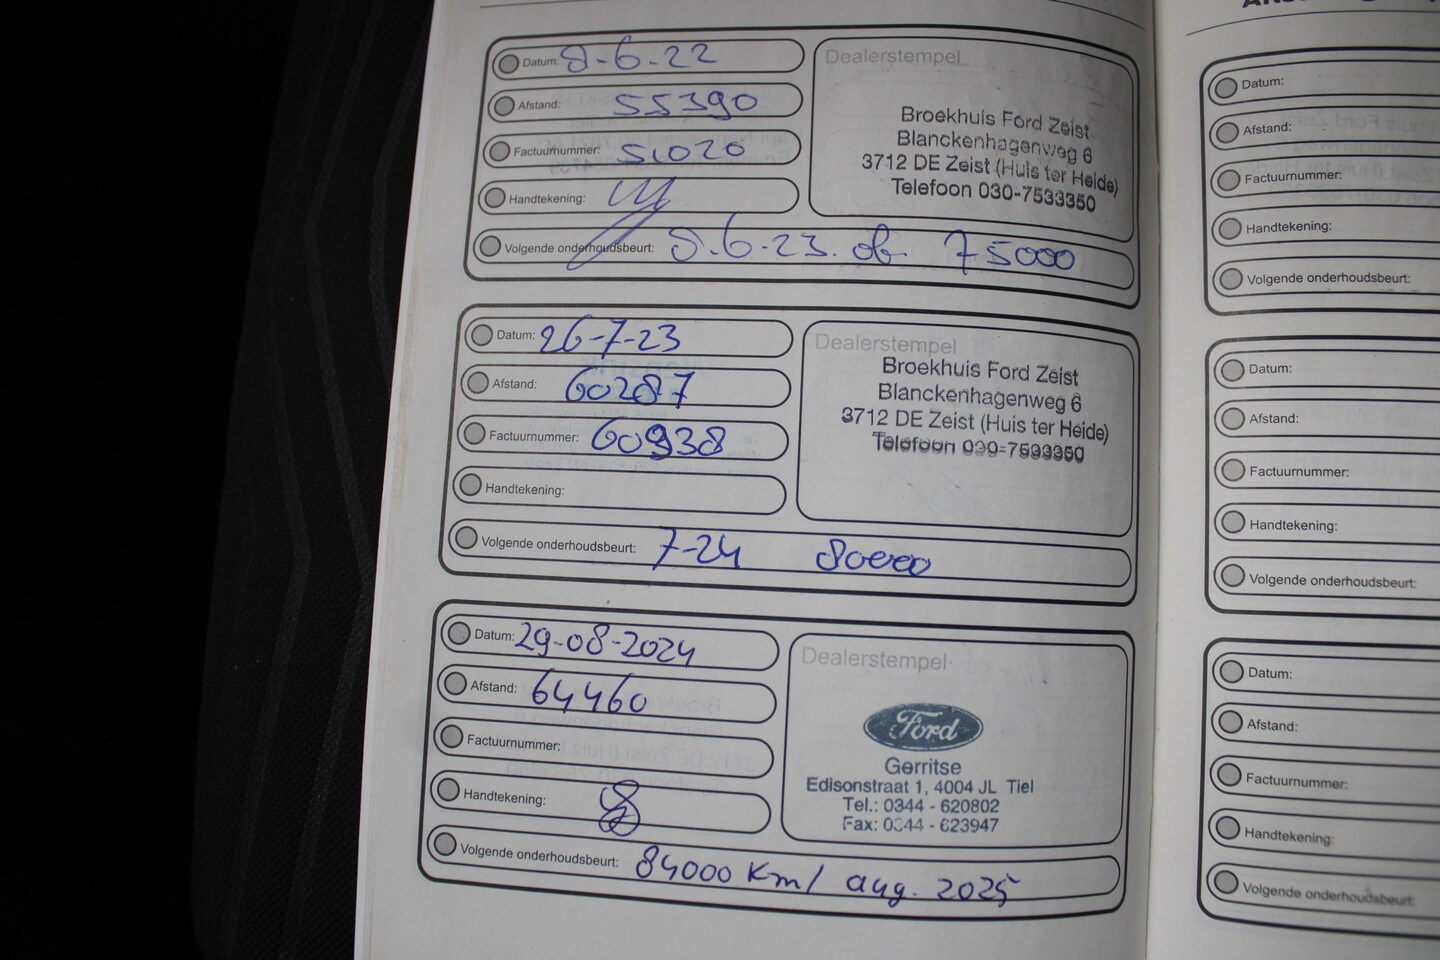 Datum: 8-6-22
Afstand: 55390
Factuurnummer: 51020
Handtekening:
Volgende onderhoudsbeurt: 8.6.23. of 75000
Dealerstempel
Broekhuis Ford Zeist
Blanckenhagenweg 6
3712 DE Zeist (Huis ter Heide)
Telefoon 030-7533350
Datum: 26-7-23
Afstand: 60287
Factuurnummer: 60938
Handtekening:
Volgende onderhoudsbeurt: 7-24 80000
Dealerstempel
Broekhuis Ford Zeist
Blanckenhagenweg 6
3712 DE Zeist (Huis ter Heide)
Telefoon 030-7533350
Datum: 29-08-2024
Afstand: 64460
Factuurnummer:
Handtekening:
Volgende onderhoudsbeurt: 84000 Km/ aug. 2025
Dealerstempel
Ford
Gerritse
Edisonstraat 1, 4004 JL Tiel
Tel.: 0344 - 620802
Fax: 0344 - 623947
Datum:
Afstand:
Factuurnummer:
Handtekening:
Volgende onderhoudsbeurt:
Datum:
Afstand:
Factuurnummer:
Handtekening:
Volgende onderhoudsbeurt:
Datum:
Afstand:
Factuurnummer:
Handtekening:
Volgende onderhoudsbeurt: